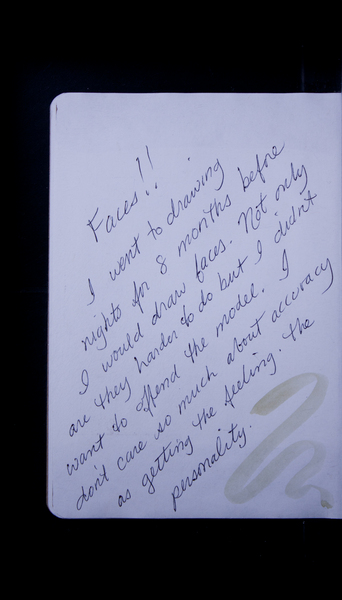 Faces!!
I went to drawing
nights for 8 months before
I would draw faces. Not only
are they harder to do but I didn't
want to offend the model. I
don't care so much about accuracy
as getting the feeling. The
personality.